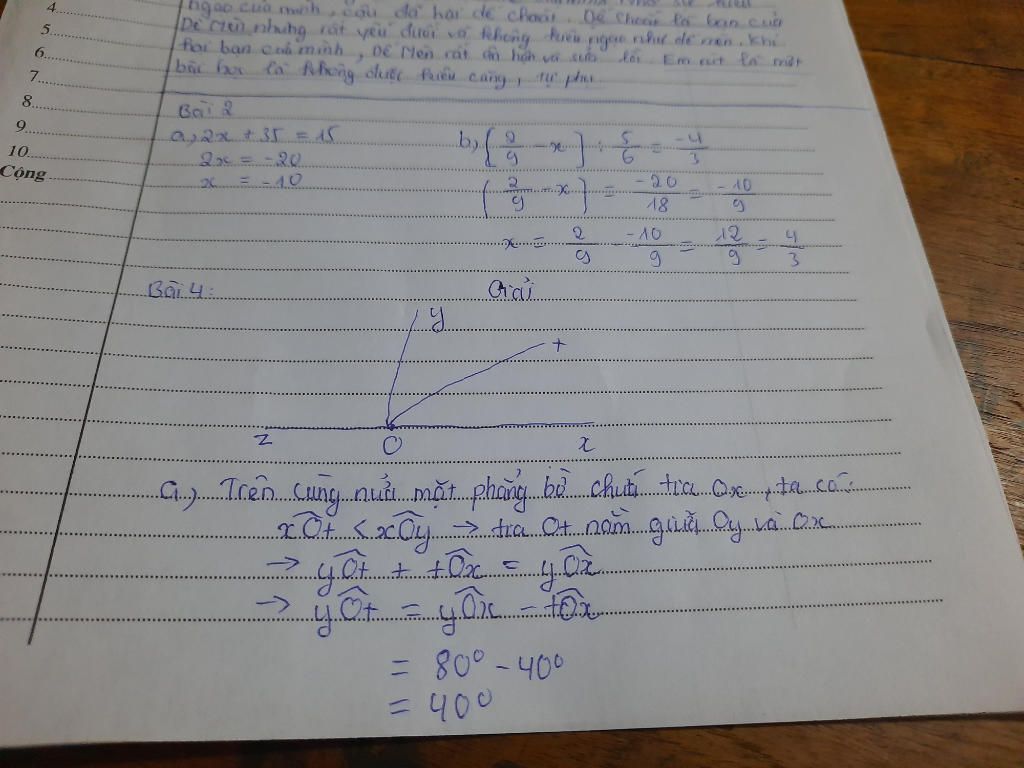 ngạo của mình, cậu đã hại dế choắt. Dế Choắt là bạn của
Dế Mèn nhưng rất yếu đuối và không kiêu ngạo như dế mèn. Khi
hại bạn của mình, Dế Mèn rất ân hận và xin lỗi. Em rút ra một
bài học là không được kiêu căng, tự phụ.
4
5
6
7
8
9
10
Cộng
Bài 2
a, 2x + 35 = 15
2x = -20
x = -10
b, [2/9 - x] : 5/6 = -4/3
[2/9 - x] = -20/18 = -10/9
x = 2/9 - -10/9 = 12/9 = 4/3
Bài 4:
Giải
y
t
z
O
x
a, Trên cùng nửa mặt phẳng bờ chứa tia Ox, ta có:
xÔt < xÔy → tia Ot nằm giữa Oy và Ox
→ yÔt + tÔx = yÔx
→ yÔt = yÔx - tÔx
= 80° - 40°
= 40°